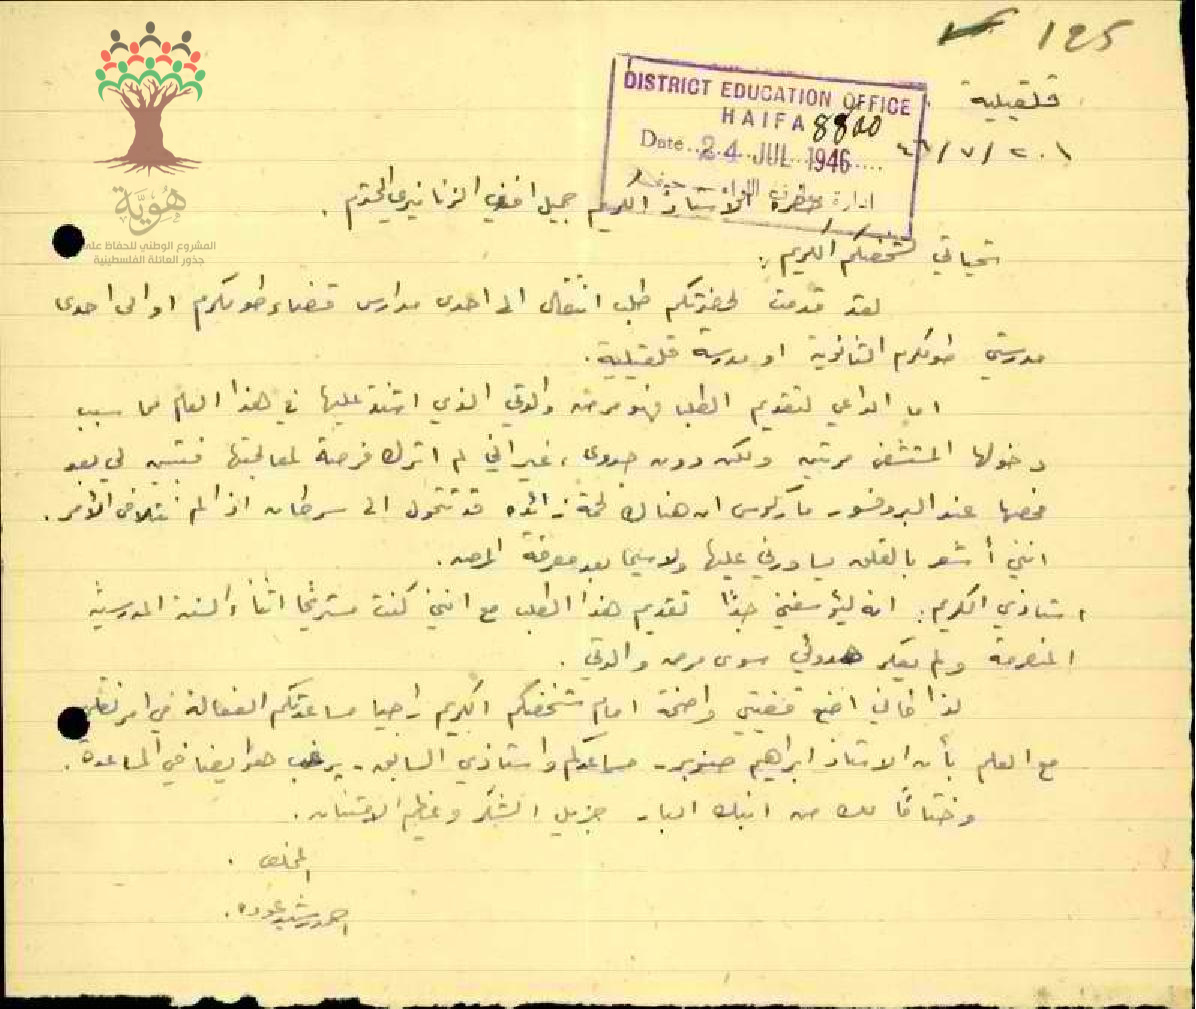 185
قلقيلية
DISTRICT EDUCATION OFFICE
HAIFA 8800
Date 24 JUL 1946
ادارة معارف اللواء - حيفا
٢٠/٧/٤٦
حضرة الاستاذ الكريم جميل افندي الزنانيري المحترم .
تحياتي لشخصكم الكريم :
لقد قدمت لحضرتكم طلب انتقال الى احدى مدارس قضاء طولكرم او الى احدى
مدرستي طولكرم الثانوية او مدرسة قلقيلية .
اما الداعي لتقديم الطلب فهو مرض والدتي الذي اشتد عليها في هذا العام مما سبب
دخولها المستشفى مرتين ولكن دون جدوى ، غير اني لم اترك فرصة لمعالجتها فتبين لي بعد
فحصها عند البروفسور ماركوس ان هناك لحمة زائدة قد تتحول الى سرطان اذا لم نتلافى الامر .
انني أشعر بالقلق يساورني عليها ولا سيما بعد معرفة المرض .
استاذي الكريم : انه ليؤسفني جدًا تقديم هذا الطلب مع انني كنت مستريحا اثناء السنة المدرسية
المنصرمة ولم يعكر هدوئي سوى مرض والدتي .
لذا فاني اضع قضيتي واضحة امام شخصكم الكريم راجيا مساعدتكم الفعالة في امر نقلي
مع العلم بأن الاستاذ ابراهيم صنوبر - مساعدكم واستاذي السابق - يرغب هو ايضا في المساعدة .
وختامًا لك من ابنك البار جزيل الشكر وعظيم الامتنان .
المخلص .
احمد رشيد عوده .
هُوِيَّة
المشروع الوطني للحفاظ على
جذور العائلة الفلسطينية